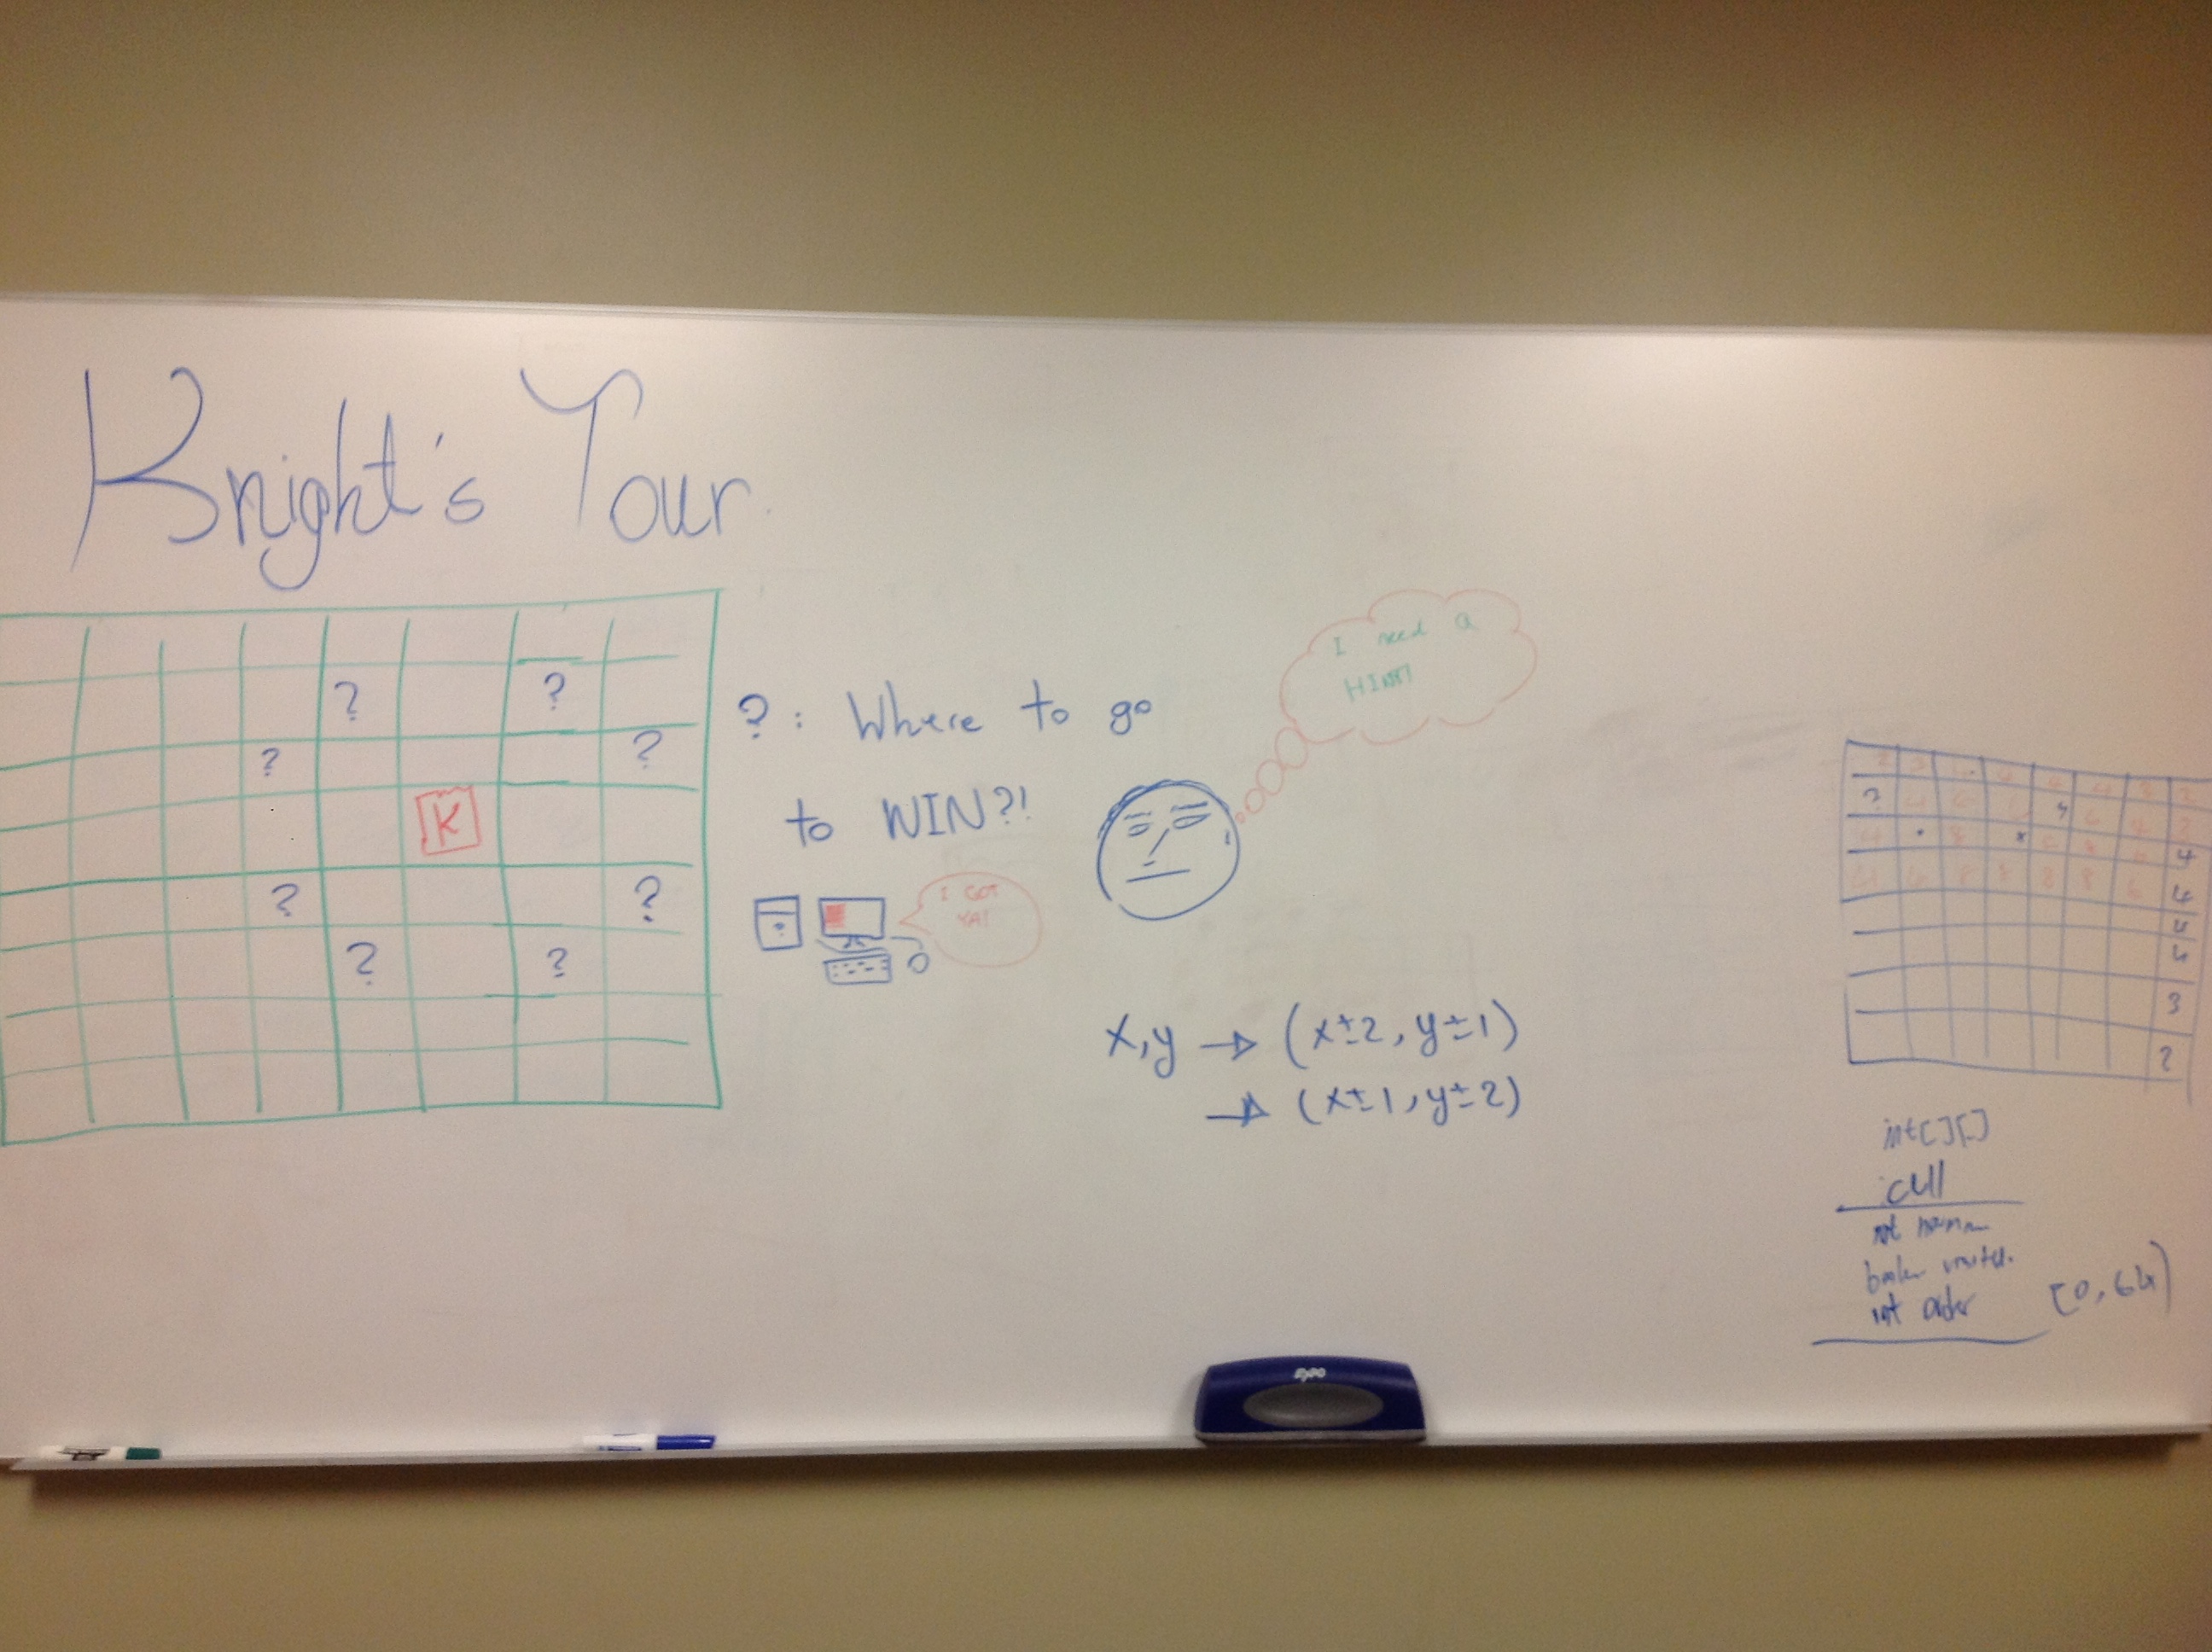 Knight's Tour
? ?
? ?
K
? ?
? ?
? : Where to go
to WIN?!
I GOT
YA!
I need a
HINT!
x,y → (x±2, y±1)
→ (x±1, y±2)
2 3 4 4 4 3 2
?
4
4
4
4
3
2
int[][]
cell
int
boolean visited.
int order [0, 64)
expo